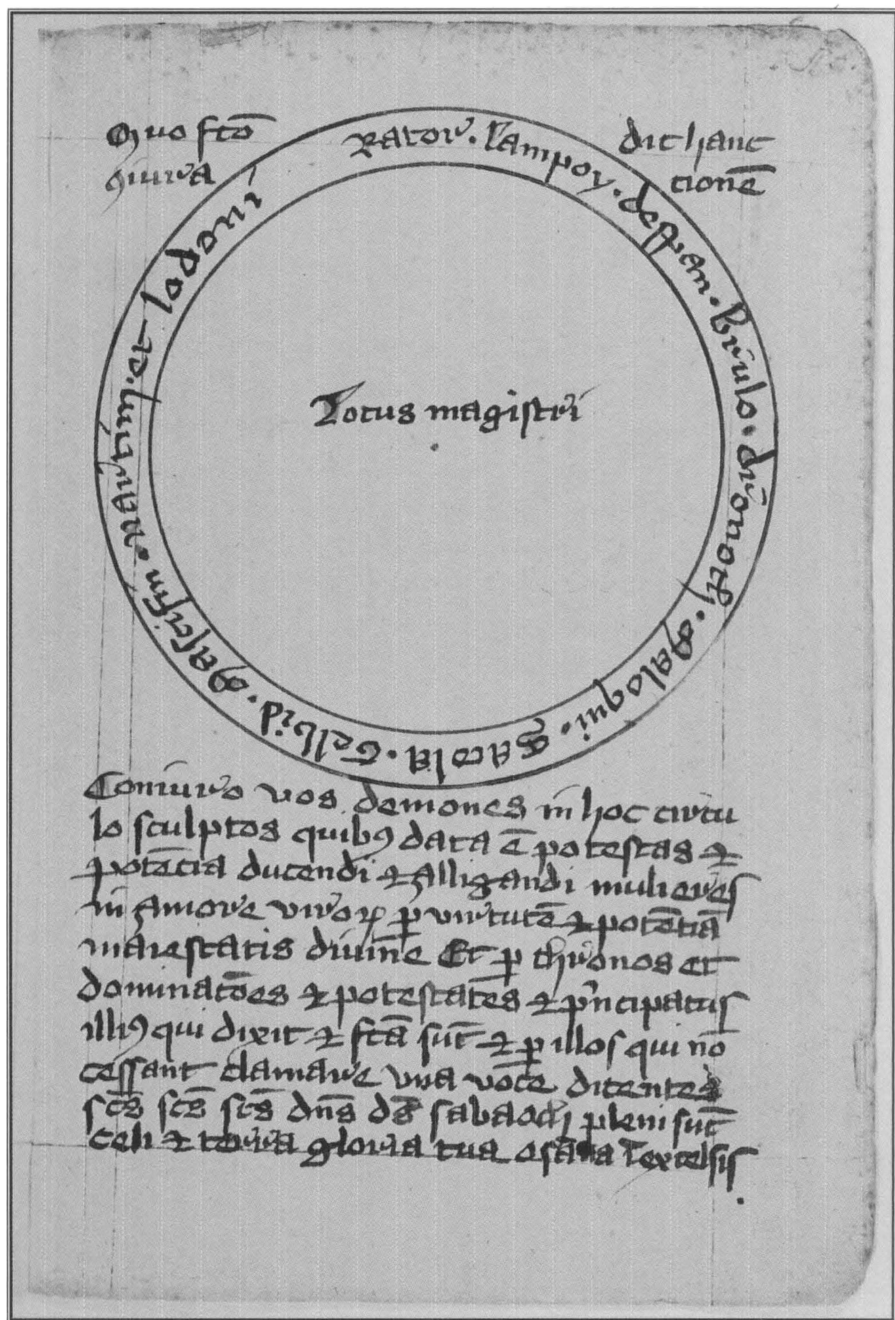 Quo fcō dic hanc
ꝯiura cionē
Rator. lampoy. despan. brūlo. drōnoth. Maloqui. Satola. Gelbid. Mascifin. Nartim. et lodoni
Locus magistri
Coniuro vos demones in hoc circu
lo sculptos quibꝰ data ē potestas ⁊
potēcia ducendi ⁊ alligandi mulieres
in amore viroꝝ ꝑ virtutē ⁊ potētiā
maiestatis diuīne Et ꝑ thronos et
dominacōes ⁊ potestates ⁊ pͥncipatus
illiꝰ qui dixit ⁊ fcā sūt ⁊ ꝑ illos qui nō
cessant clamare vna voce dicentes
scūs scūs scūs dn̄s ds̄ sabaoth pleni sūt
celi ⁊ terra gloria tua osāna ī excelsis